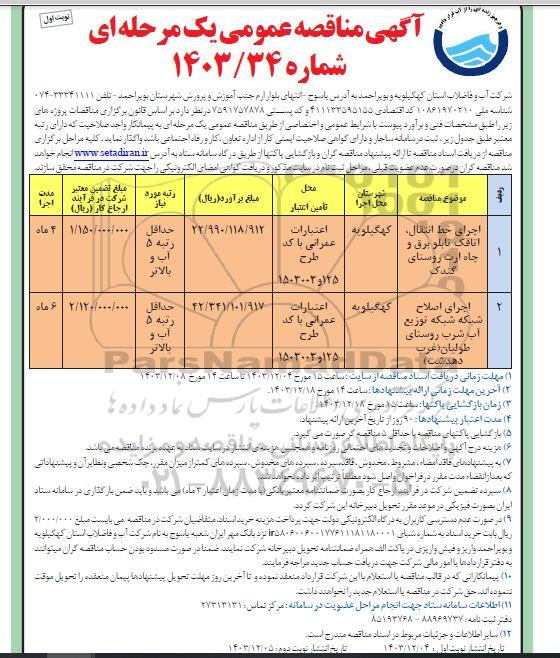 نوبت اول
آگهی مناقصه عمومی یک مرحله ای
شماره ۱۴۰۳/۳۴
شرکت آب و فاضلاب استان کهگیلویه و بویراحمد به آدرس یاسوج -انتهای بلوار ارم جنب آموزش و پرورش شهرستان بویراحمد - تلفن ۳۳۳۴۱۱۱۱-۰۷۴
شناسه ملی ۱۰۸۶۱۹۷۰۲۱۰ کد اقتصادی ۴۱۱۱۳۳۵۹۵۱۵۵ و کد پستی ۷۵۹۱۷۵۷۸۷۸ در نظر دارد بر اساس قانون برگزاری مناقصات پروژه های
زیر را طبق مشخصات فنی و برآورد پیوست با شرایط عمومی و اختصاصی از طریق مناقصه عمومی یک مرحله ای به پیمانکار واجد صلاحیت که دارای رتبه
معتبر طبق جدول زیر، ثبت در سامانه ساجار و دارای گواهی صلاحیت ایمنی کار از اداره تعاون، کار و رفاه اجتماعی باشد واگذار نماید. کلیه مراحل برگزاری
مناقصه از دریافت اسناد مناقصه تا ارائه پیشنهاد مناقصه گران و بازگشایی پاکتها از طریق درگاه سامانه ستاد به آدرس www.setadiran.ir انجام خواهد
شد مناقصه گران در صورت عدم عضویت قبلی، مراحل ثبت نام در سایت مذکور و دریافت گواهی امضای الکترونیکی را جهت شرکت در مناقصه محقق سازند.
ردیف موضوع مناقصه شهرستان محل اجرا محل تامین اعتبار مبلغ برآورد(ریال) رتبه مورد نیاز مبلغ تضمین معتبر شرکت در فرآیند ارجاع کار (ریال) مدت اجرا
۱ اجرای خط انتقال، اتاقک تابلو برق و چاه ارت روستای گندک کهگیلویه اعتبارات عمرانی با کد طرح ۱۵۰۳۰۰۳و۱۲۵ ۲۲/۹۹۰/۱۱۸/۹۱۲ حداقل رتبه ۵ آب و بالاتر ۱/۱۵۰/۰۰۰/۰۰۰ ۴ ماه
۲ اجرای اصلاح شبکه شبکه توزیع آب شرب روستای طولیان(غرب دهدشت) کهگیلویه اعتبارات عمرانی با کد طرح ۱۵۰۳۰۰۳و۱۲۵ ۴۲/۳۴۱/۱۰۱/۹۱۷ حداقل رتبه ۵ آب و بالاتر ۲/۱۲۰/۰۰۰/۰۰۰ ۶ ماه
۱) مهلت زمانی دریافت اسناد مناقصه از سایت: ساعت ۱۵ مورخ ۱۴۰۳/۱۲/۰۴ تا ساعت ۱۴ مورخ ۱۴۰۳/۱۲/۰۸
۲) آخرین مهلت زمانی ارائه پیشنهادها: ساعت ۱۴ مورخ ۱۴۰۳/۱۲/۱۸
۳) زمان بازگشایی پاکتها: ساعت ۱۵ مورخ ۱۴۰۳/۱۲/۱۸.
۴) مدت اعتبار پیشنهادها: ۹۰ روز از تاریخ آخرین ارائه پیشنهاد.
۵) بازگشایی پاکتهای مناقصه با حداقل ۵ مناقصه گر صورت می گیرد.
۶) هزینه درج آگهی و اصلاحات و تجدیدهای احتمالی روزنامه و همچنین هزینه ی انتشار در سایت ستاد به عهده برنده مناقصه می باشد.
۷) به پیشنهادهای فاقد امضاء، مشروط، مخدوش، فاقد سپرده، سپرده های مخدوش، سپرده های کمتر از میزان مقرر، چک شخصی و نظایر آن و پیشنهاداتی
که بعد از انقضاء مدت مقرر در فراخوان واصل شود مطلقا ترتیب اثر داده نخواهد شد.
۸) سپرده تضمین شرکت در فرآیند ارجاع کار بصورت ضمانتنامه معتبر بانکی (با مدت زمان اعتبار ۳ ماه) می باشد و باید ضمن بارگذاری در سامانه ستاد
ایران بصورت فیزیکی در موعد مقرر تحویل دبیرخانه این شرکت گردد.
۹) در صورت عدم دسترسی کاربران به درگاه الکترونیکی دولت جهت پرداخت هزینه خرید اسناد، متقاضیان شرکت در مناقصه می بایست مبلغ ۲/۰۰۰/۰۰۰
ریال بابت خرید اسناد به شماره شبای نزد بانک مهر ایران شعبه یاسوج به نام شرکت آب و فاضلاب استان کهگیلویه
و بویراحمد واریز و فیش واریزی در پاکت الف همراه ضمانتنامه تحویل دبیرخانه شرکت نمایند. ضمنا در صورت مسدود بودن حساب مناقصه گران میتوانند
به دفتر قراردادها یا امور مالی شرکت جهت دریافت حساب جدید مراجعه فرمایند.
۱۰) پیمانکارانی که در قالب مناقصه یا استعلام با این شرکت قرارداد منعقد نموده و تا آخرین روز مهلت تحویل پیشنهادها پیمان منعقده را تحویل موقت
ننموده اند، حق شرکت در مناقصه یا استعلام جدید را نخواهند داشت.
۱۱) اطلاعات سامانه ستاد جهت انجام مراحل عضویت در سامانه: مرکز تماس: ۲۷۳۱۳۱۳۱
دفتر ثبت نامه: ۸۸۹۶۹۷۳۷ - ۸۵۱۹۳۷۶۸
۱۲) سایر اطلاعات و جزئیات مربوط در اسناد مناقصه مندرج است.
تاریخ انتشار نوبت اول: ۱۴۰۳/۱۲/۰۴ تاریخ انتشار نوبت دوم: ۱۴۰۳/۱۲/۰۵